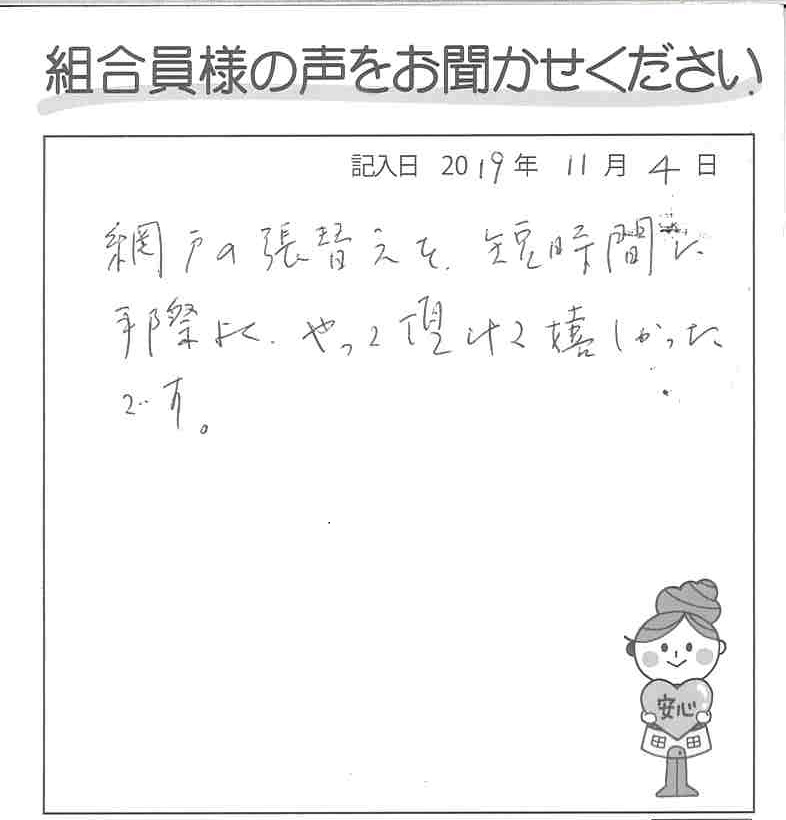 組合員様の声をお聞かせください
記入日 2019年 11月 4日
網戸の張替えを、短時間に
手際よく、やって頂けて嬉しかった
です。
安心